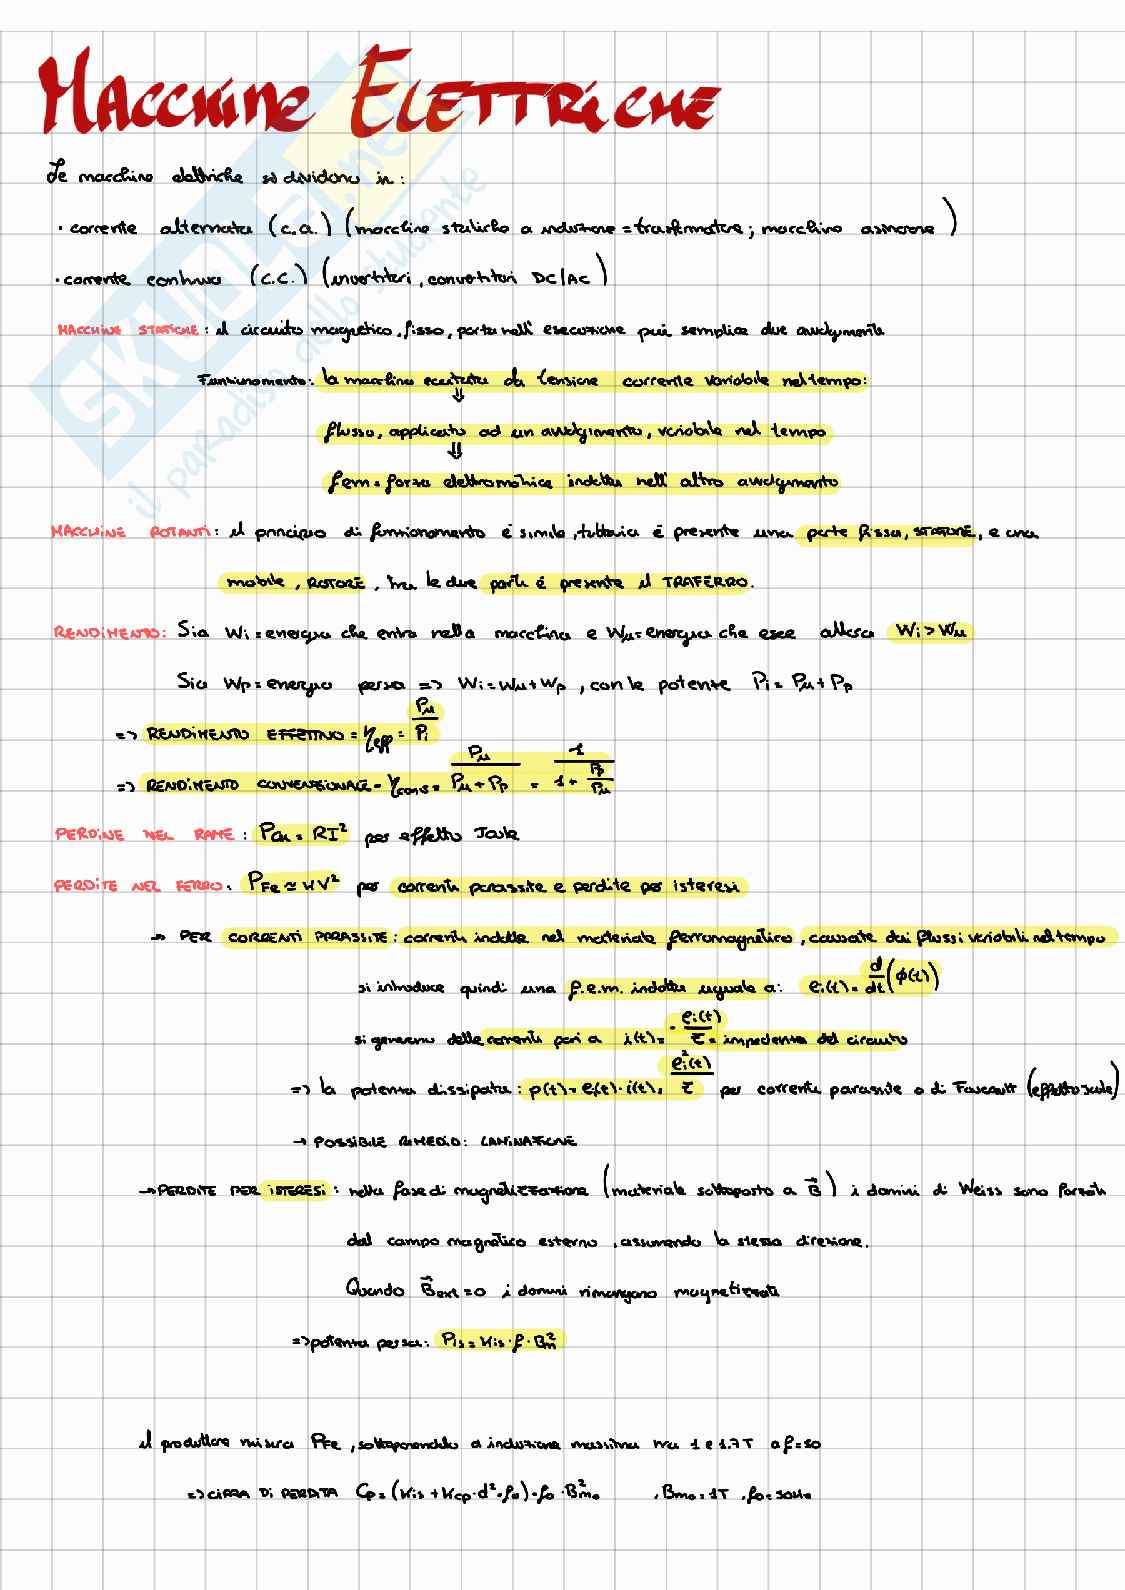 MACCHINE ELETTRICHE
Le macchine elettriche si dividono in:
· corrente alternata (c.a.) (macchine statiche a induzione = trasformatore; macchine asincrone)
· corrente continua (c.c.) (invertitori, convertitori DC/AC)
MACCHINE STATICHE: il circuito magnetico, fisso, porta nell'esecuzione più semplice due avvolgimenti
Funzionamento: la macchina eccitata da tensione corrente variabile nel tempo:
⇓
flusso, applicato ad un avvolgimento, variabile nel tempo
⇓
fem = forza elettromotrice indotta nell'altro avvolgimento
MACCHINE ROTANTI: il principio di funzionamento è simile, tuttavia è presente una parte fissa, STATORE, e una
mobile, ROTORE, tra le due parti è presente il TRAFERRO.
RENDIMENTO: Sia Wi = energia che entra nella macchina e Wu = energia che esce allora Wi > Wu
Sia Wp = energia persa => Wi = Wu + Wp, con le potenze Pi = Pu + Pp
=> RENDIMENTO EFFETTIVO = ηeff = Pu/Pi
=> RENDIMENTO CONVENZIONALE = ηconv = Pu/(Pu + Pp) = 1/(1 + Pp/Pu)
PERDITE NEL RAME: PCu = RI² per effetto Joule
PERDITE NEL FERRO: PFe ≃ KV² per correnti parassite e perdite per isteresi
→ PER CORRENTI PARASSITE: correnti indotte nel materiale ferromagnetico, causate dai flussi variabili nel tempo
si introduce quindi una f.e.m. indotta uguale a: ei(t) = d/dt (ϕ(t))
si generano delle correnti pari a i(t) = - ei(t)/Z = impedenza del circuito
=> la potenza dissipata: p(t) = ei(t) · i(t) = ei²(t)/Z per correnti parassite o di Foucault (effetto Joule)
→ POSSIBILE RIMEDIO: LAMINAZIONE
→ PERDITE PER ISTERESI: nella fase di magnetizzazione (materiale sottoposto a B⃗) i domini di Weiss sono forzati
dal campo magnetico esterno, assumendo la stessa direzione.
Quando B⃗ext = 0 i domini rimangono magnetizzati
=> potenza persa: Pis = Kis · f · Bm²
il produttore misura PFe, sottoponendolo a induzione massima tra 1 e 1.7T a f = 50
=> CIFRA DI PERDITA Cp = (Kis + Kcp · d² · f0) · f0 · Bm0² , Bm0 = 1T , f0 = 50Hz
SKUOLA.net
il paradiso dello studente